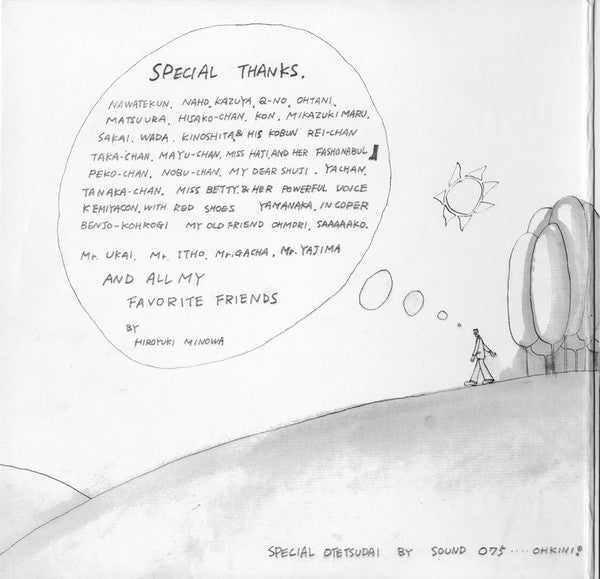 SPECIAL THANKS.
NAWATEKUN. NAHO. KAZUYA. Q-NO. OHTANI.
MATSUURA. HISAKO-CHAN. KON. MIKAZUKIMARU.
SAKAI. WADA. KINOSHITA & HIS KOBUN REI-CHAN
TAKA-CHAN. MAYU-CHAN. MISS HAJI, AND HER FASHONABUL
PEKO-CHAN. NOBU-CHAN. MY DEAR SHUJI. YACHAN.
TANAKA-CHAN. MISS BETTY. & HER POWERFUL VOICE
KEMIYACON. WITH RED SHOES YAMANAKA. IN COPER
BENJO-KOHROGI MY OLD FRIEND OHMORI. SAAAAAKO.
Mr. UKAI. Mr. ITHO. Mr. GACHA. Mr. YAJIMA
AND ALL MY
FAVORITE FRIENDS
BY
HIROYUKI MINOWA
SPECIAL OTETSUDAI BY SOUND 075.... OHKINI!